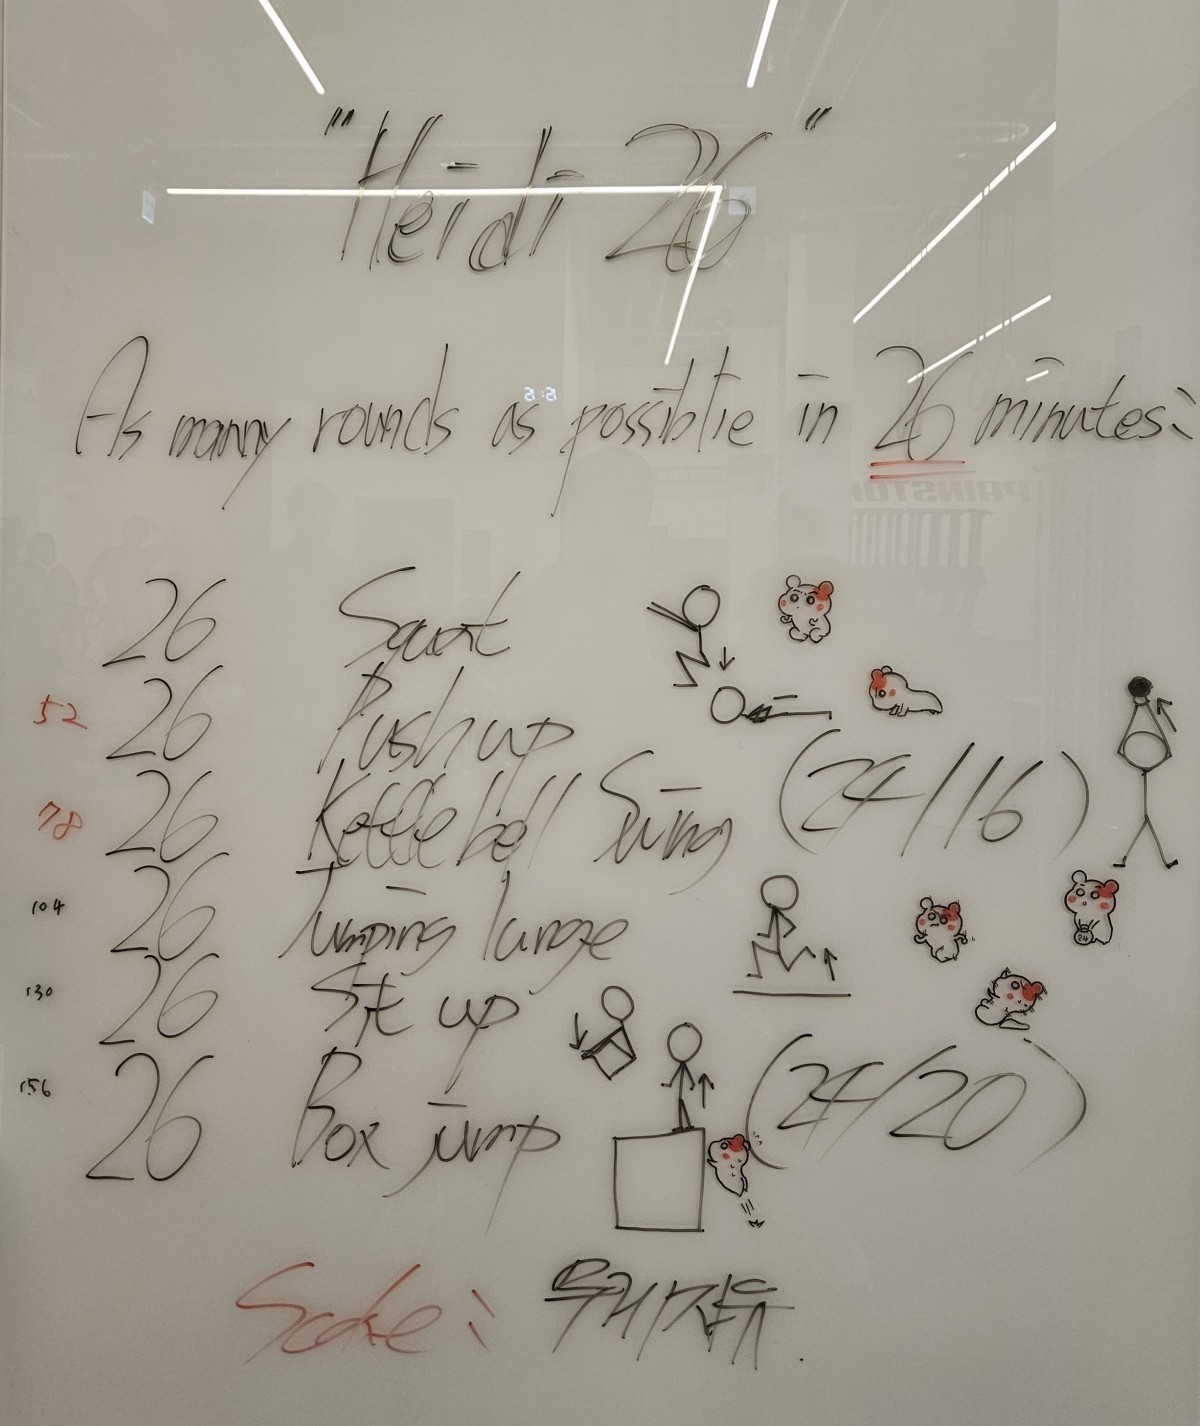 "Heidi 26"
As many rounds as possible in 26 minutes:
26 Squat
52 26 Push up
78 26 Kettle bell Swing (24/16)
104 26 Jumping lunge
24
130 26 Sit up
156 26 Box jump (24/20)
Scale: 무게자유.